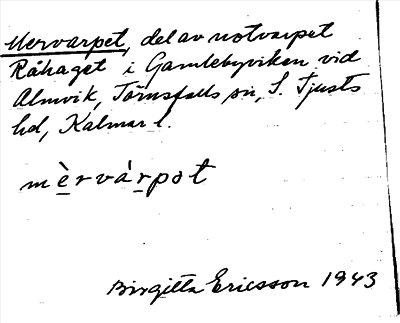 Mervarpet, del av notvarpet
Råhaget i Gamlebyviken vid
Almvik, Törnsfalls sn, S. Tjusts
hd, Kalmar l.
mèrvárpot
Birgitta Ericsson 1943